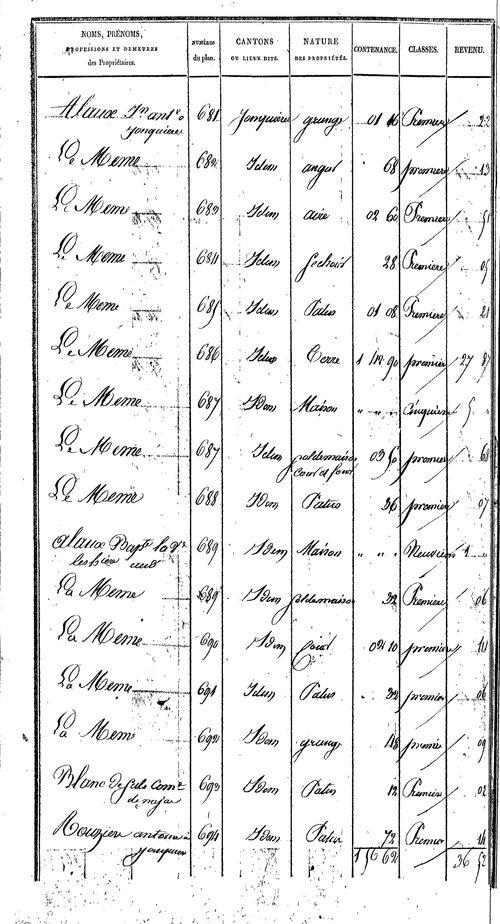 NOMS, PRÉNOMS, PROFESSIONS ET DEMEURES des Propriétaires. NUMÉROS du plan. CANTONS OU LIEUX DITS. NATURE DES PROPRIÉTÉS. CONTENANCE. CLASSES. REVENU.
Alaux Jn ant.ne 681 Jonquiere grange 01 16 Premiere 22
Jonquieres
Le Meme 682 Idem 68 premiere 13
Le Meme 683 Idem aire 02 60 Premiere 51
Le Meme 684 Idem sechoir 28 Premiere 05
Le Meme 685 Idem Patus 01 08 Premiere 21
Le Meme 686 Idem Terre 1 42 90 premiere 27 87
Le Meme 687 Idem Maison " " " Cinquieme 5 "
Le Meme 687 Idem soldemaison 03 50 premiere 68
cour et four
Le Meme 688 Idem Patus 36 premiere 07
Alaux Bapt. la Ve 689 Idem Maison " " " Neuvieme 1 "
La Meme 689 Idem soldemaison 32 Premiere 06
La Meme 690 Idem 02 10 premiere 41
La Meme 691 Idem Patus 32 premiere 06
La Meme 692 Idem grange 48 premiere 09
Blanc 693 Idem Patus 12 Premiere 02
de najac
Rouzien antoine a 694 Idem Patus 72 Premiere 14
Jonquieres 1 56 62 36 52